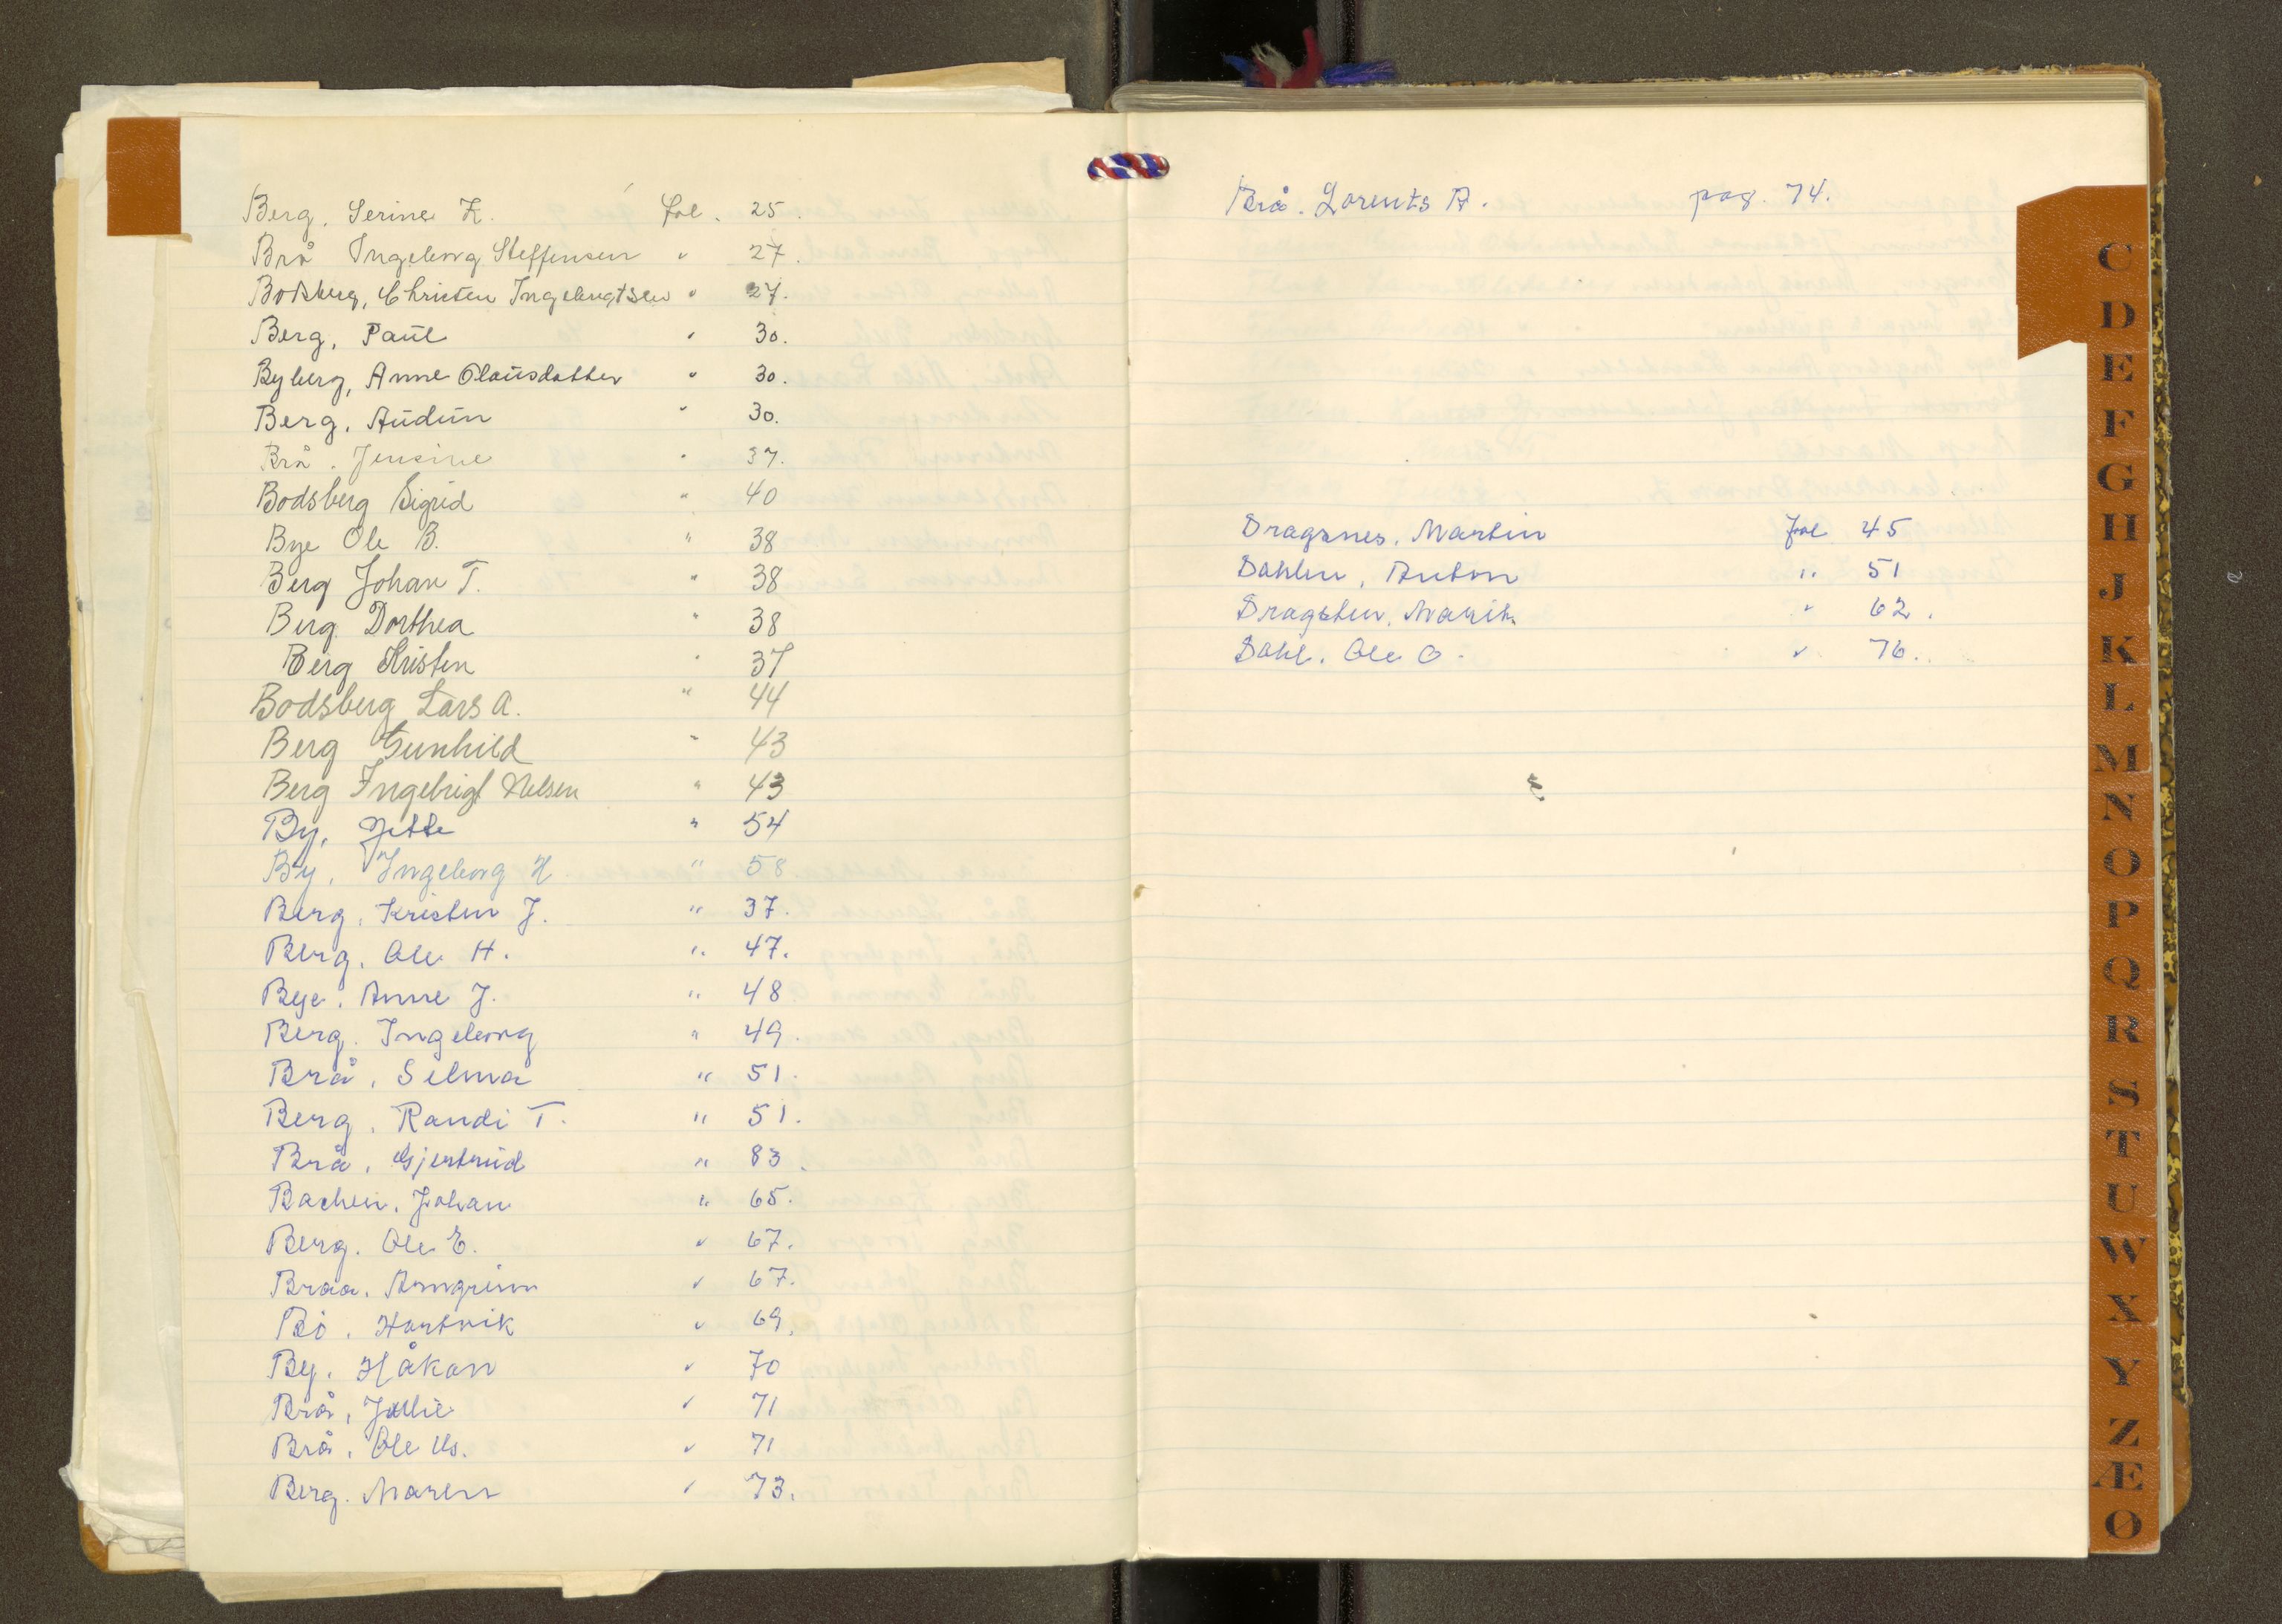 Berg, Serine K. Fol. 25.
Brå Ingeborg Steffensen " 27.
Bodsberg, Christen Ingebrigtsen " 27.
Berg, Paul " 30.
Byberg, Anne Olausdatter " 30.
Berg, Audun " 30.
Brå. Jensine " 37.
Bodsberg Sigrid " 40
Bye Ole B. " 38
Berg Johan T. " 38
Berg Dorthea " 38
Berg Kristen " 37
Bodsberg Lars A. " 44
Berg Gunhild " 43
Berg Ingebrigt Nelsen " 43
By, Jette " 54
By, Ingeborg H " 58
Berg, Kristen J. " 37.
Berg, Ole H. " 47.
Bye, Anne J. " 48
Berg. Ingeborg " 49.
Brå, Selma " 51.
Berg, Randi T. " 51.
Brå, Gjertrud " 83.
Bachen, Johan " 65.
Berg. Ole E. " 67.
Braa. Arngrim " 67.
Bö. Hartvik " 69.
By. Håkon " 70
Brå, Jullie " 71
Brå. Ole Us. " 71
Berg. Maren " 73.
Brå. Lorents A. pag. 74.
Dragsnes, Martin Fol 45
Dahlen, Anton " 51
Dragsten, Marit " 62.
Dahl. Ole O. " 76.
C
D
E
F
G
H
J
K
L
M
N
O
P
Q
R
S
T
U
W
X
Y
Z
Æ
Ø